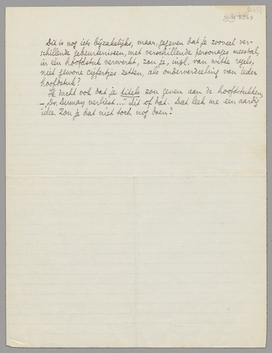 Dit is nog iets bijzakelijks, maar gegeven dat je zooveel ver-
schillende gebeurtenissen, met verschillende personages meestal,
in één hoofdstuk verwerkt, zou je, inpl. van witte regels,
niet gewone cijfertjes zetten, als onderverdeeling van ieder
hoofdstuk?
Ik dacht ook dat je titels zou geven aan de hoofdstukken
— „Dr. Dumay verliest..." dit of dat. Dat leek me een aardig
idee. Zou je dat niet toch nog doen?